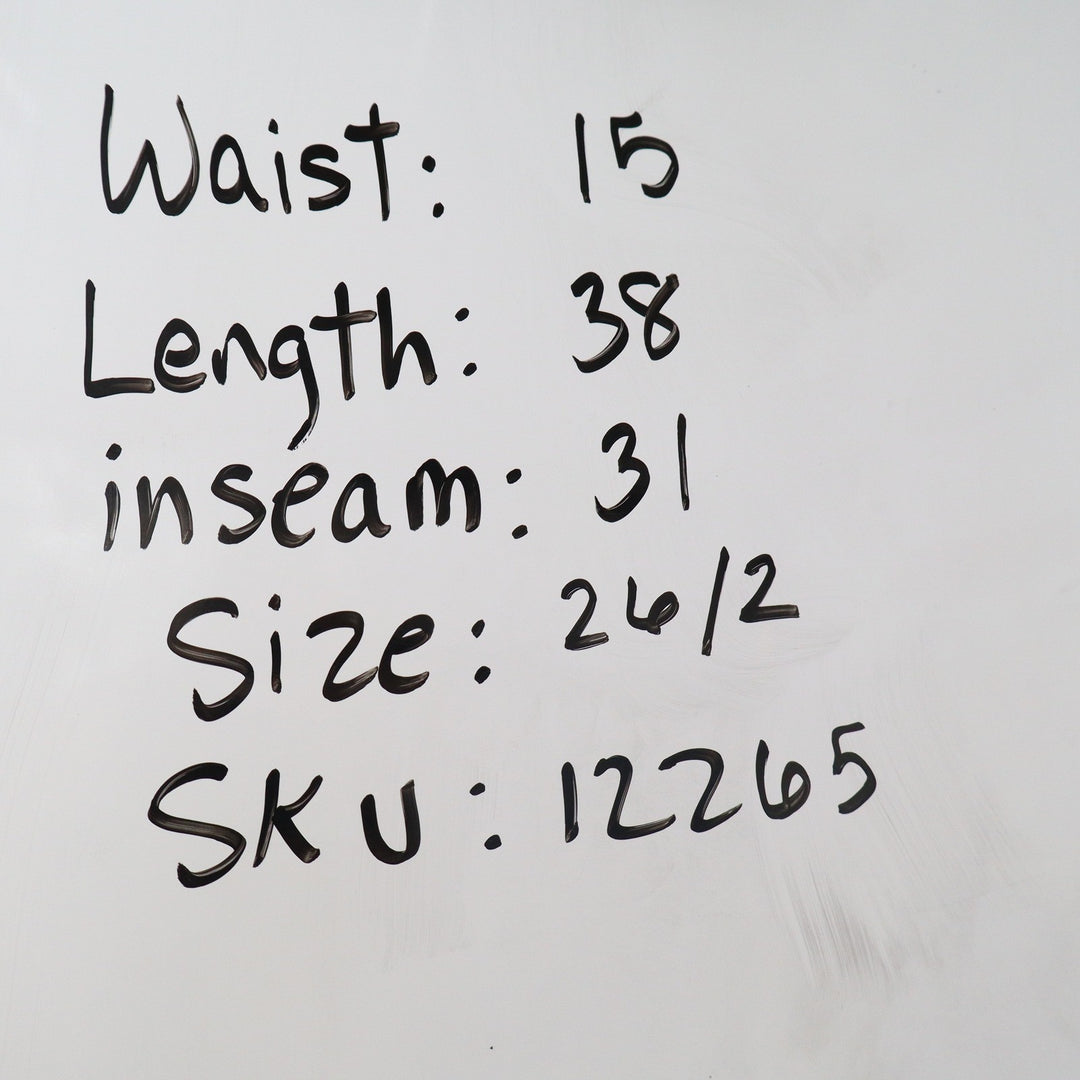 Waist: 15
Length: 38
inseam: 31
Size: 26/2
SKU: 12265